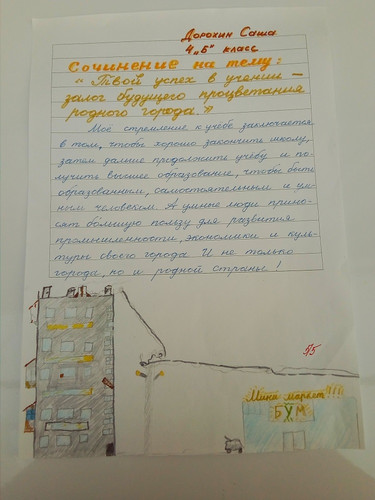 Дорохин Саша
4 „Б" класс
Сочинение на тему:
„Твой успех в учении –
залог будущего процветания
родного города."
Моё стремление к учёбе заключается
в том, чтобы хорошо закончить школу,
затем дальше продолжить учёбу и по-
лучить высшее образование, чтобы быть
образованным, самостоятельным и ум-
ным человеком. А умные люди прино-
сят большую пользу для развития
промышленности, экономики и куль-
туры своего города. И не только
города, но и родной страны!
5/5
Мини маркет!!!
БУМ